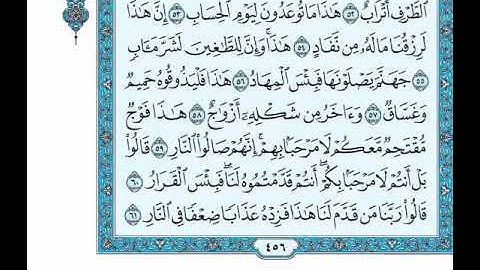 ٱلطَّرۡفِ أَتۡرَابٌ ۝٥٢ هَٰذَا مَا تُوعَدُونَ لِيَوۡمِ ٱلۡحِسَابِ ۝٥٣ إِنَّ هَٰذَا
لَرِزۡقُنَا مَا لَهُۥ مِن نَّفَادٍ ۝٥٤ هَٰذَاۚ وَإِنَّ لِلطَّٰغِينَ لَشَرَّ مَـَٔابٖ
۝٥٥ جَهَنَّمَ يَصۡلَوۡنَهَا فَبِئۡسَ ٱلۡمِهَادُ ۝٥٦ هَٰذَا فَلۡيَذُوقُوهُ حَمِيمٞ
وَغَسَّاقٞ ۝٥٧ وَءَاخَرُ مِن شَكۡلِهِۦٓ أَزۡوَٰجٌ ۝٥٨ هَٰذَا فَوۡجٞ
مُّقۡتَحِمٞ مَّعَكُمۡ لَا مَرۡحَبَۢا بِهِمۡۚ إِنَّهُمۡ صَالُواْ ٱلنَّارِ ۝٥٩ قَالُواْ
بَلۡ أَنتُمۡ لَا مَرۡحَبَۢا بِكُمۡۖ أَنتُمۡ قَدَّمۡتُمُوهُ لَنَاۖ فَبِئۡسَ ٱلۡقَرَارُ
۝٦٠
قَالُواْ رَبَّنَا مَن قَدَّمَ لَنَا هَٰذَا فَزِدۡهُ عَذَابٗا ضِعۡفٗا فِي ٱلنَّارِ ۝٦١
٤٥٦